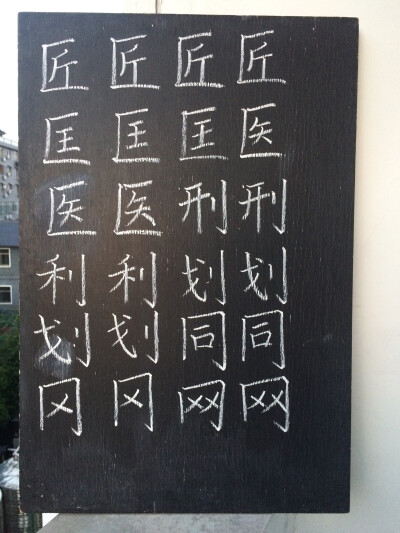 匠匠匠匠
匡匡匡医
医医刑刑
利利划划
划划同同
冈冈网网